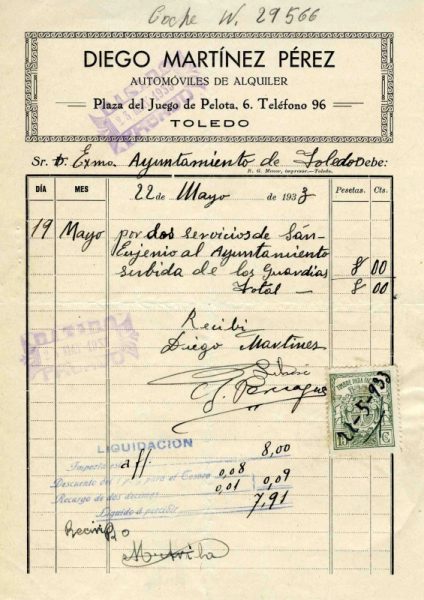 Coche W. 29566
DIEGO MARTÍNEZ PÉREZ
AUTOMÓVILES DE ALQUILER
Plaza del Juego de Pelota, 6. Teléfono 96
TOLEDO
Sr. D. Exmo. Ayuntamiento de Toledo Debe:
R. G. Menor, impresor.-Toledo.
DÍA MES 22 de Mayo de 1933 Pesetas. Cts.
19 Mayo por dos servicios de San
Eujenio al Ayuntamiento
subida de los Guardias 8 00
Total — 8 00
Recibi
Diego Martines
21-5-933
LIQUIDACION
Importa esta 8,00
Descuento del 1 p% para el Tesoro 0,08
Recargo de dos décimas 0,01 0,09
Líquido a percibir 7,91
Recivi